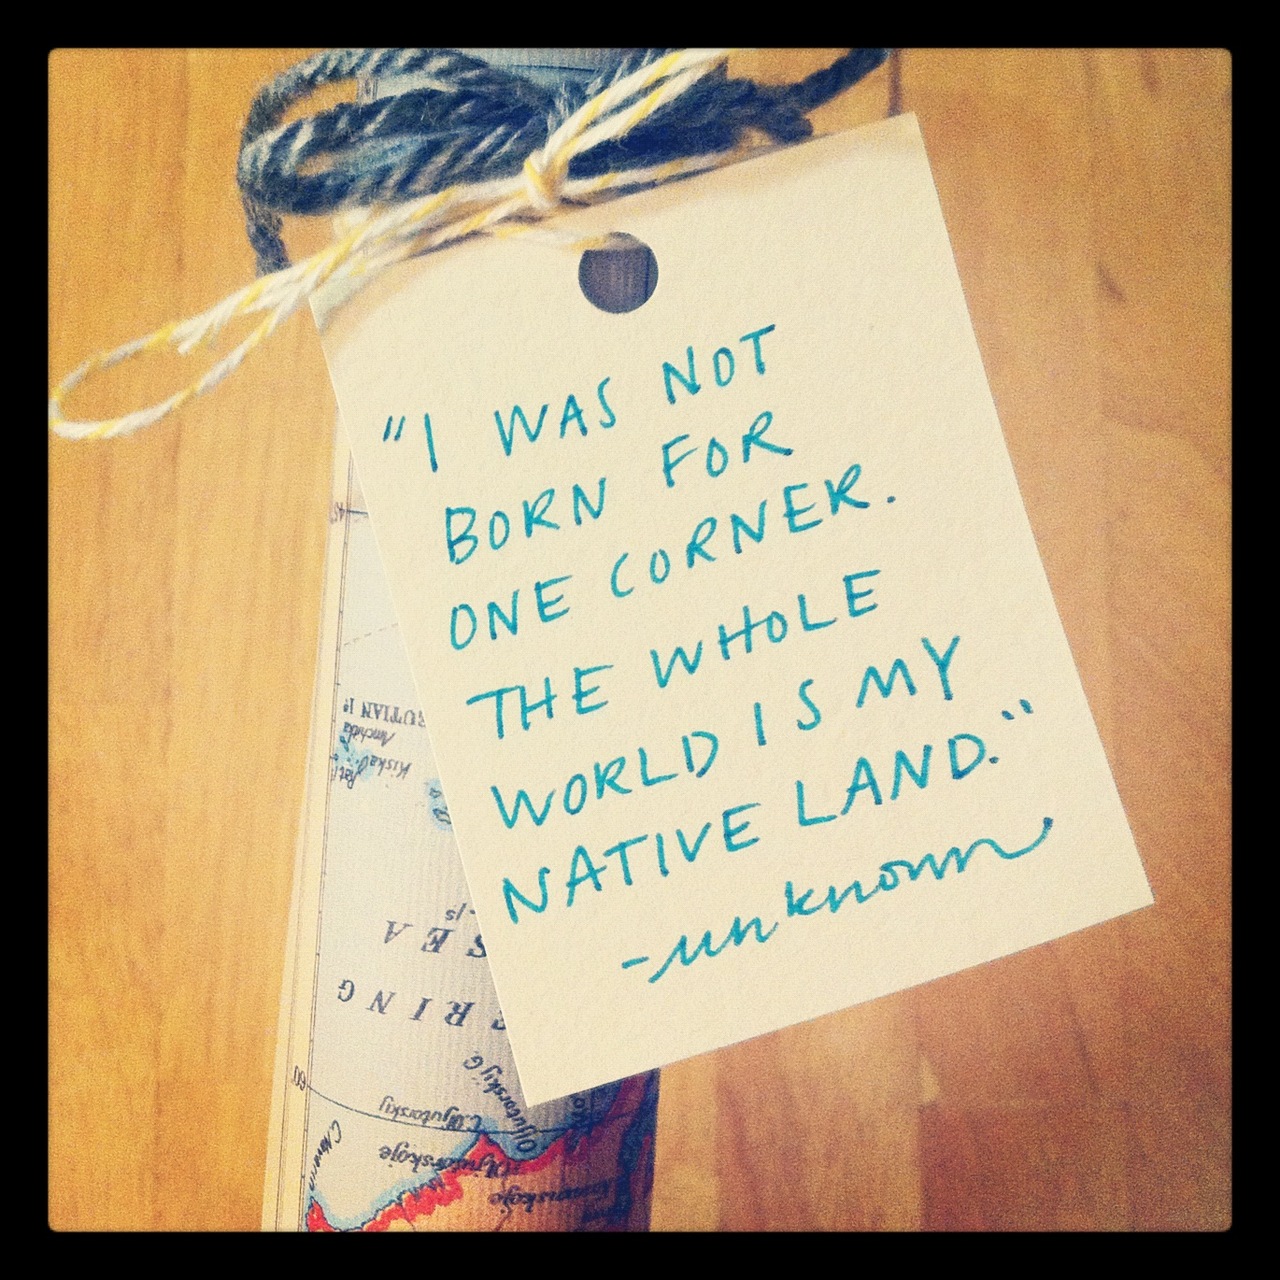 "I WAS NOT
BORN FOR
ONE CORNER.
THE WHOLE
WORLD IS MY
NATIVE LAND."
-unknown
45
Amchitka
Kiska
SEA
RING
60
C. Navarin
C. Oljutorskij
Oljutorskij G.
Oljutorskoje